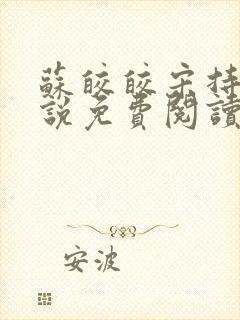 蘇皎皎宋持
說免費閱讀
安波